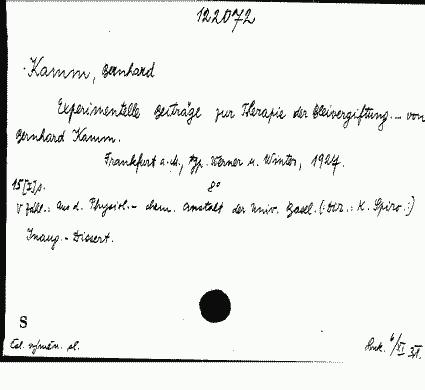 122072
Kamm, Bernhard
Experimentelle Beiträge zur Therapie der Bleivergiftung. – von
Bernhard Kamm.
Frankfurt a. M., typ. Werner u. Winter, 1927.
15 [I] p. 8°
Aus d. Physiol.- chem. Anstalt der Univ. Basel. (: Dir.: K. Spiro :)
Inaug. - Dissert.
S